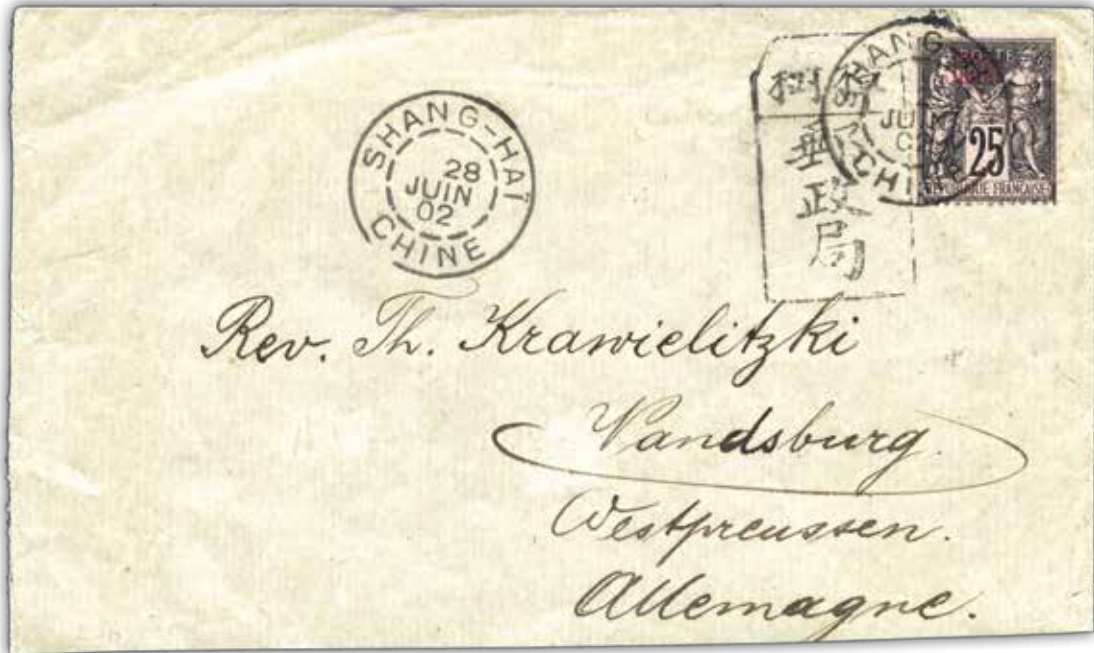 SHANG-HAÏ
28
JUIN
02
CHINE
SHANG
JUIN
CHINE
25
RÉPUBLIQUE FRANÇAISE
政局
Rev. Th. Krawielitzki
Vandsburg
Westpreussen.
Allemagne.